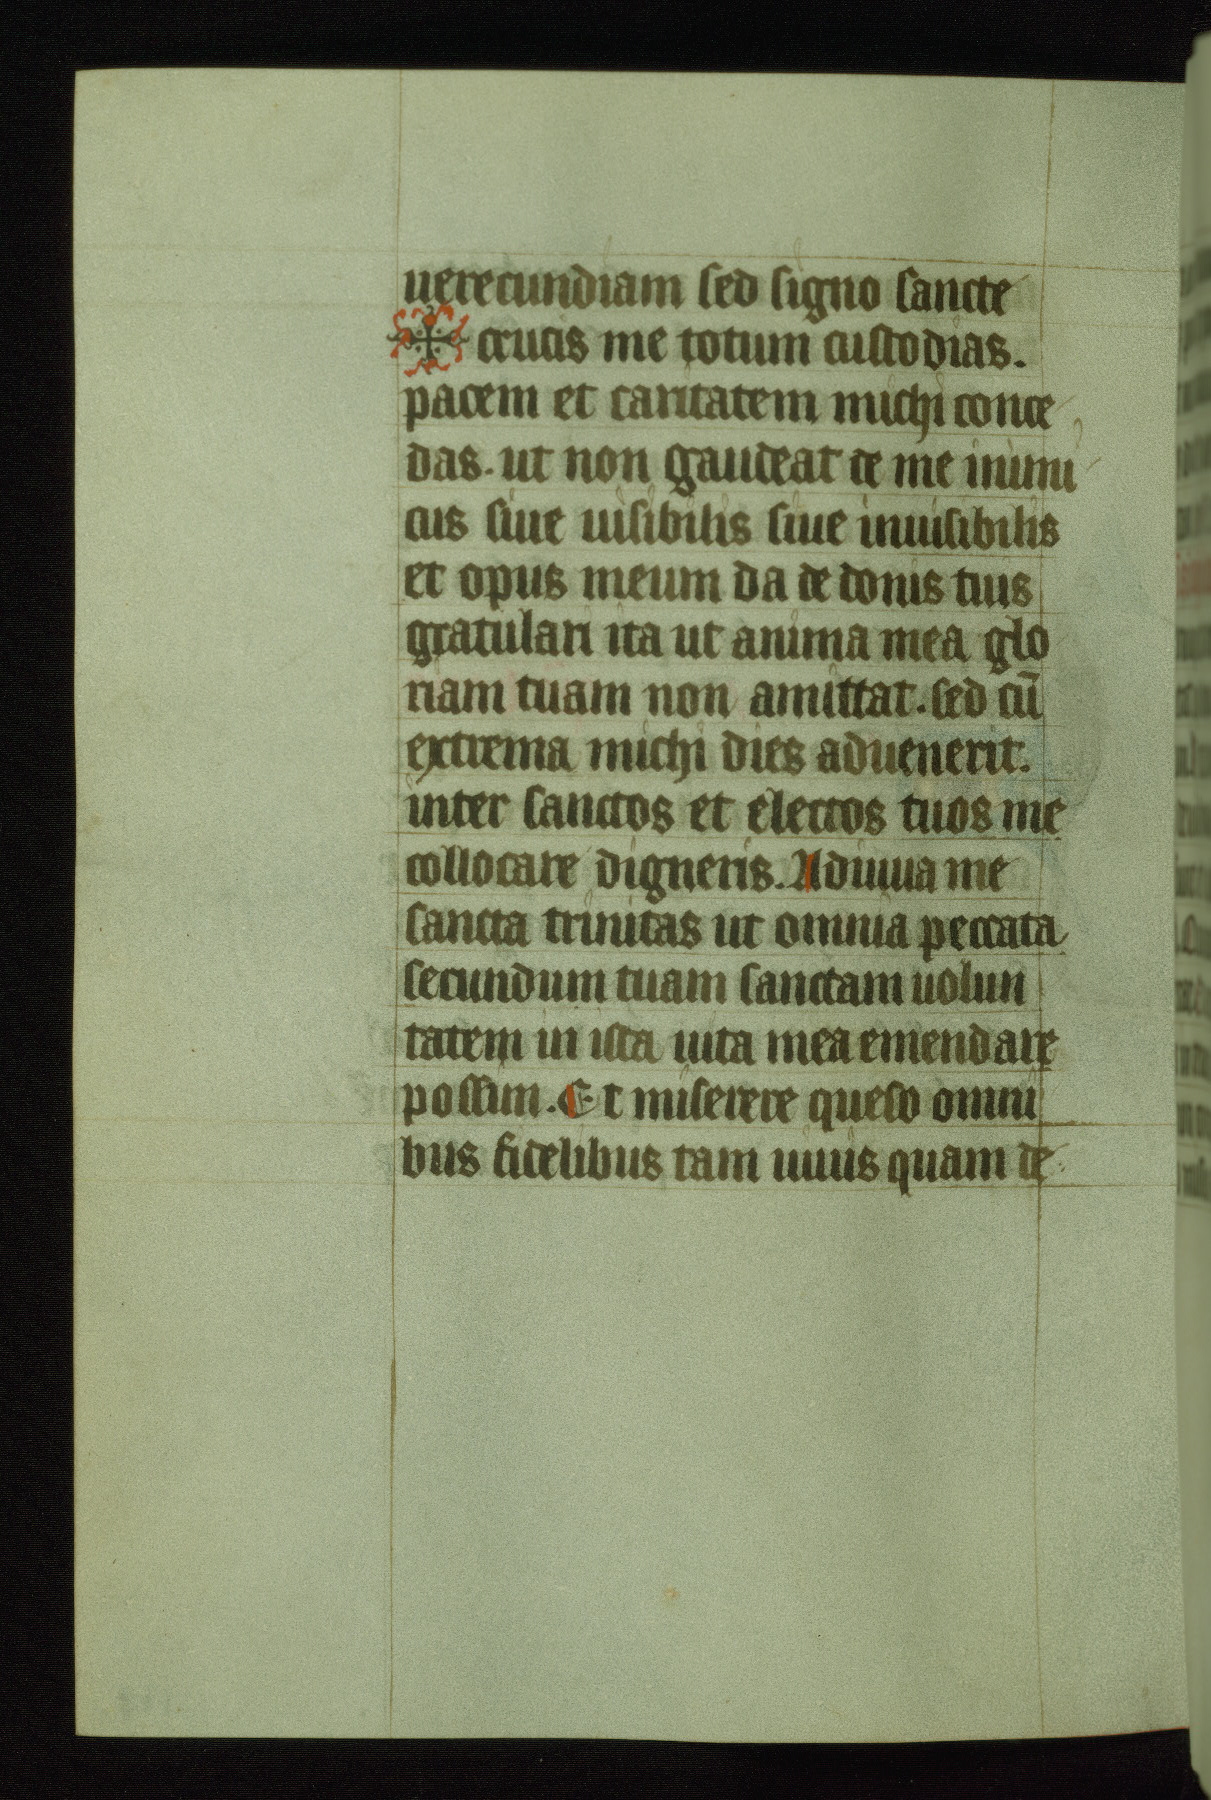 uerecundiam sed signo sancte
✠ crucis me totum custodias.
pacem et caritatem michi conce
das. ut non gaudeat de me inimi
cus siue uisibilis siue inuisibilis
et opus meum da de donis tuis
gratulari ita ut anima mea glo
riam tuam non amittat. sed cū
extrema michi dies aduenerit.
inter sanctos et electos tuos me
collocare digneris. Adiuua me
sancta trinitas ut omnia peccata
secundum tuam sanctam uolun
tatem in ista uita mea emendare
possim. Et miserere queso omni
bus fidelibus tam uiuis quam de